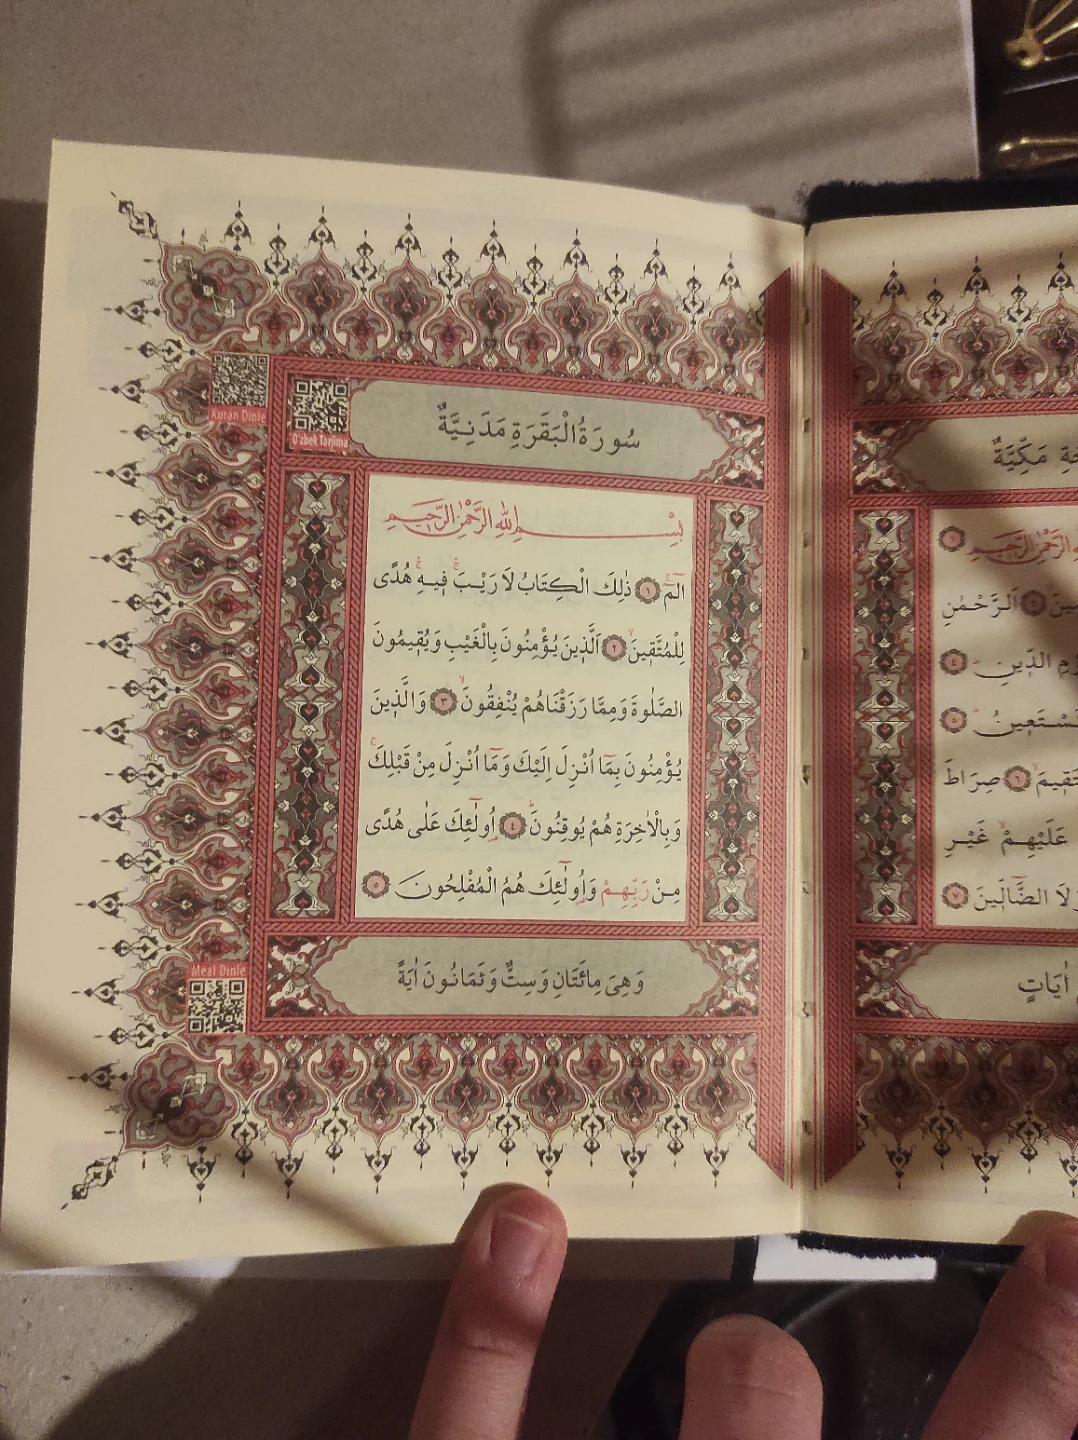 سُورَةُ الْبَقَرَةِ مَدَنِيَّةٌ
بِسْمِ اللهِ الرَّحْمٰنِ الرَّحِيمِ
الٓمٓ ﴿١﴾ ذٰلِكَ الْكِتَابُ لَا رَيْبَ فِيهِ هُدًى
لِلْمُتَّقِينَ ﴿٢﴾ اَلَّذِينَ يُؤْمِنُونَ بِالْغَيْبِ وَيُقِيمُونَ
الصَّلٰوةَ وَمِمَّا رَزَقْنَاهُمْ يُنْفِقُونَ ﴿٣﴾ وَالَّذِينَ
يُؤْمِنُونَ بِمَٓا اُنْزِلَ اِلَيْكَ وَمَٓا اُنْزِلَ مِنْ قَبْلِكَ
وَبِالْاٰخِرَةِ هُمْ يُوقِنُونَ ﴿٤﴾ اُولٰٓئِكَ عَلٰى هُدًى
مِنْ رَبِّهِمْ وَاُولٰٓئِكَ هُمُ الْمُفْلِحُونَ ﴿٥﴾
وَهِيَ مِائَتَانِ وَسِتٌّ وَثَمَانُونَ اٰيَةً
Kuran Dinle
O'zbek Tarjima
Meal Dinle
مَكِّيَّةٌ
الرَّحْمٰنِ الرَّحِيمِ ﴿١﴾
اَلرَّحْمٰنِ
الدِّينِ ﴿٤﴾
﴿٥﴾
﴿٦﴾ صِرَاطَ
عَلَيْهِمْ غَيْرِ
الضَّٓالِّينَ ﴿٧﴾
اٰيَاتٍ